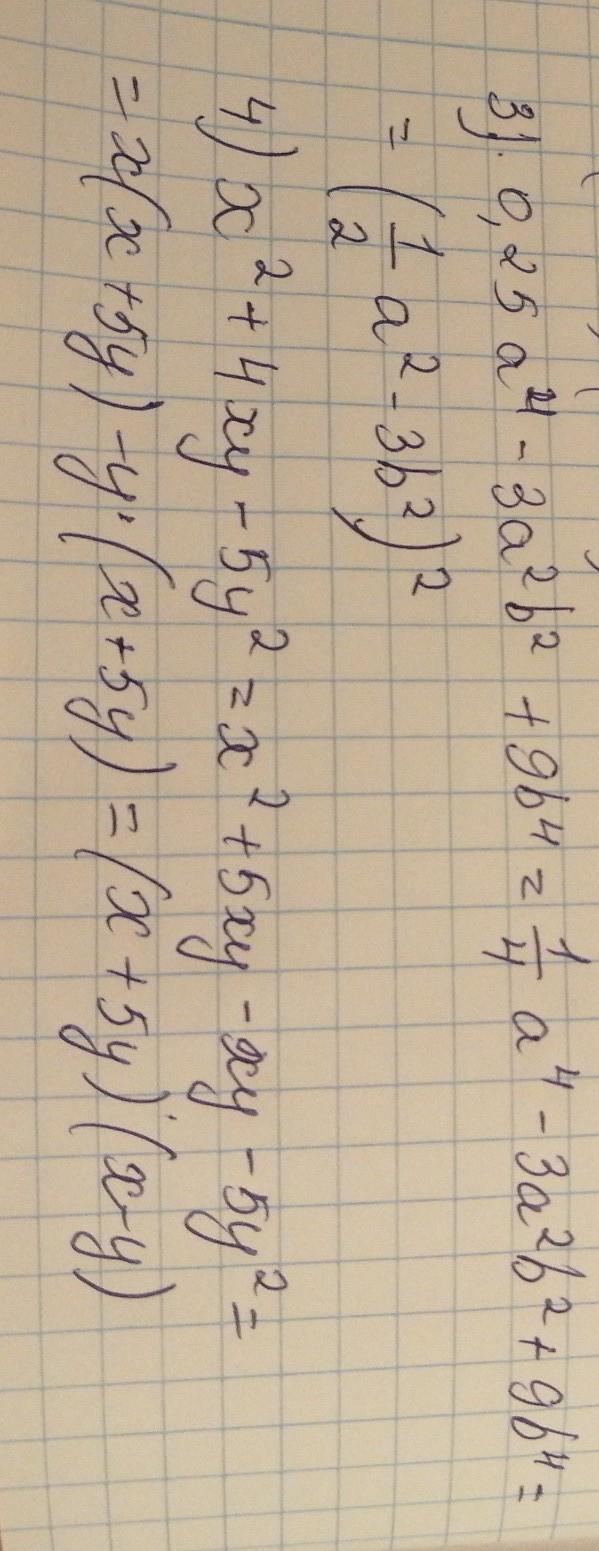 3). 0,25a⁴ - 3a²b² + 9b⁴ = 1/4 a⁴ - 3a²b² + 9b⁴ =
= (1/2 a² - 3b²)²
4) x² + 4xy - 5y² = x² + 5xy - xy - 5y² =
= x(x + 5y) - y·(x + 5y) = (x + 5y)·(x - y)